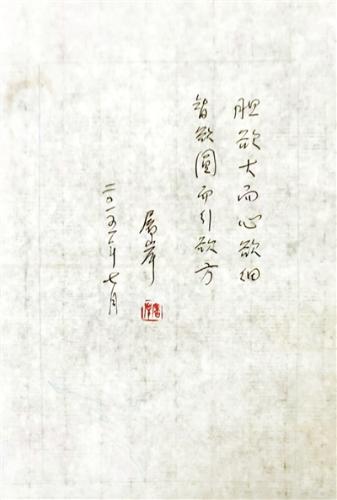 胆欲大而心欲细
智欲圓而行欲方
屠岸
二〇一五年七月
屠岸